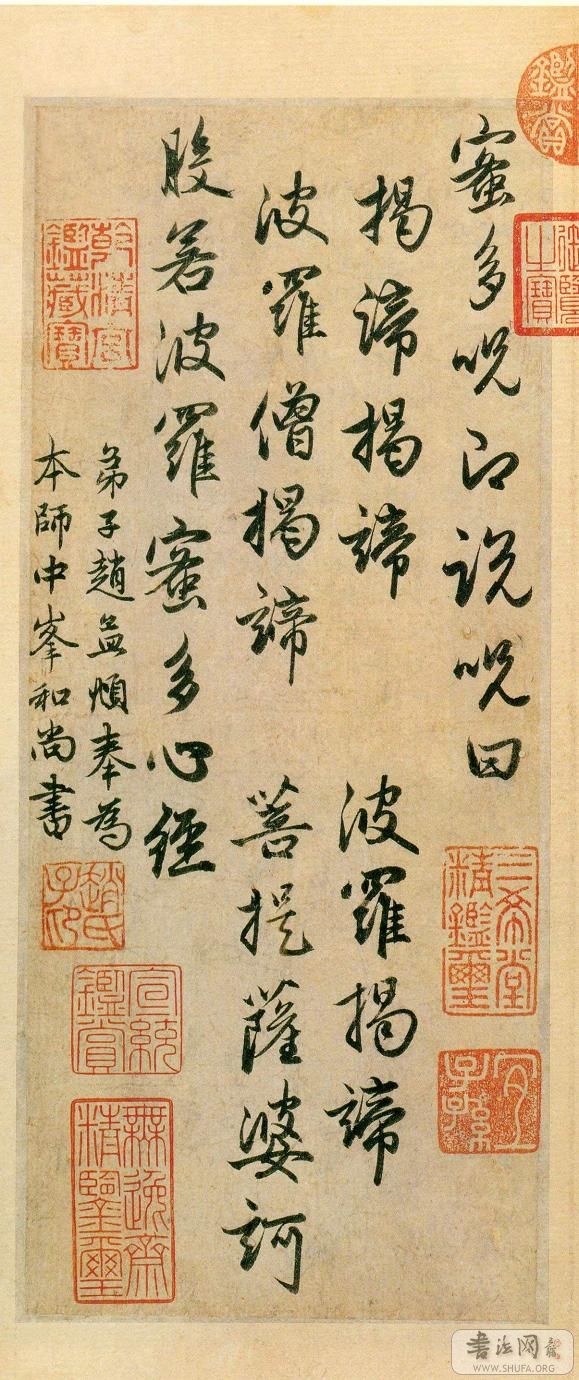 蜜多呪即説呪曰
揭諦揭諦 波羅揭諦
波羅僧揭諦 菩提薩婆訶
般若波羅蜜多心經
弟子趙孟頫奉為
本師中峯和尚書
鑑賞
御覽之寶
三希堂精鑑璽
宜子孫
乾清宮鑑藏寶
趙氏子昂
宣統鑑賞
無逸齋精鑒璽
书法网
WWW.SHUFA.ORG